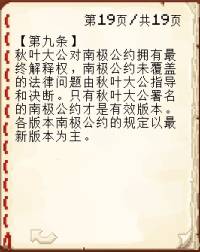 第19页/共19页
【第九条】
秋叶大公对南极公约拥有最
终解释权，南极公约未覆盖
的法律问题由秋叶大公指导
和决断。只有秋叶大公署名
的南极公约才是有效版本。
各版本南极公约的规定以最
新版本为主。